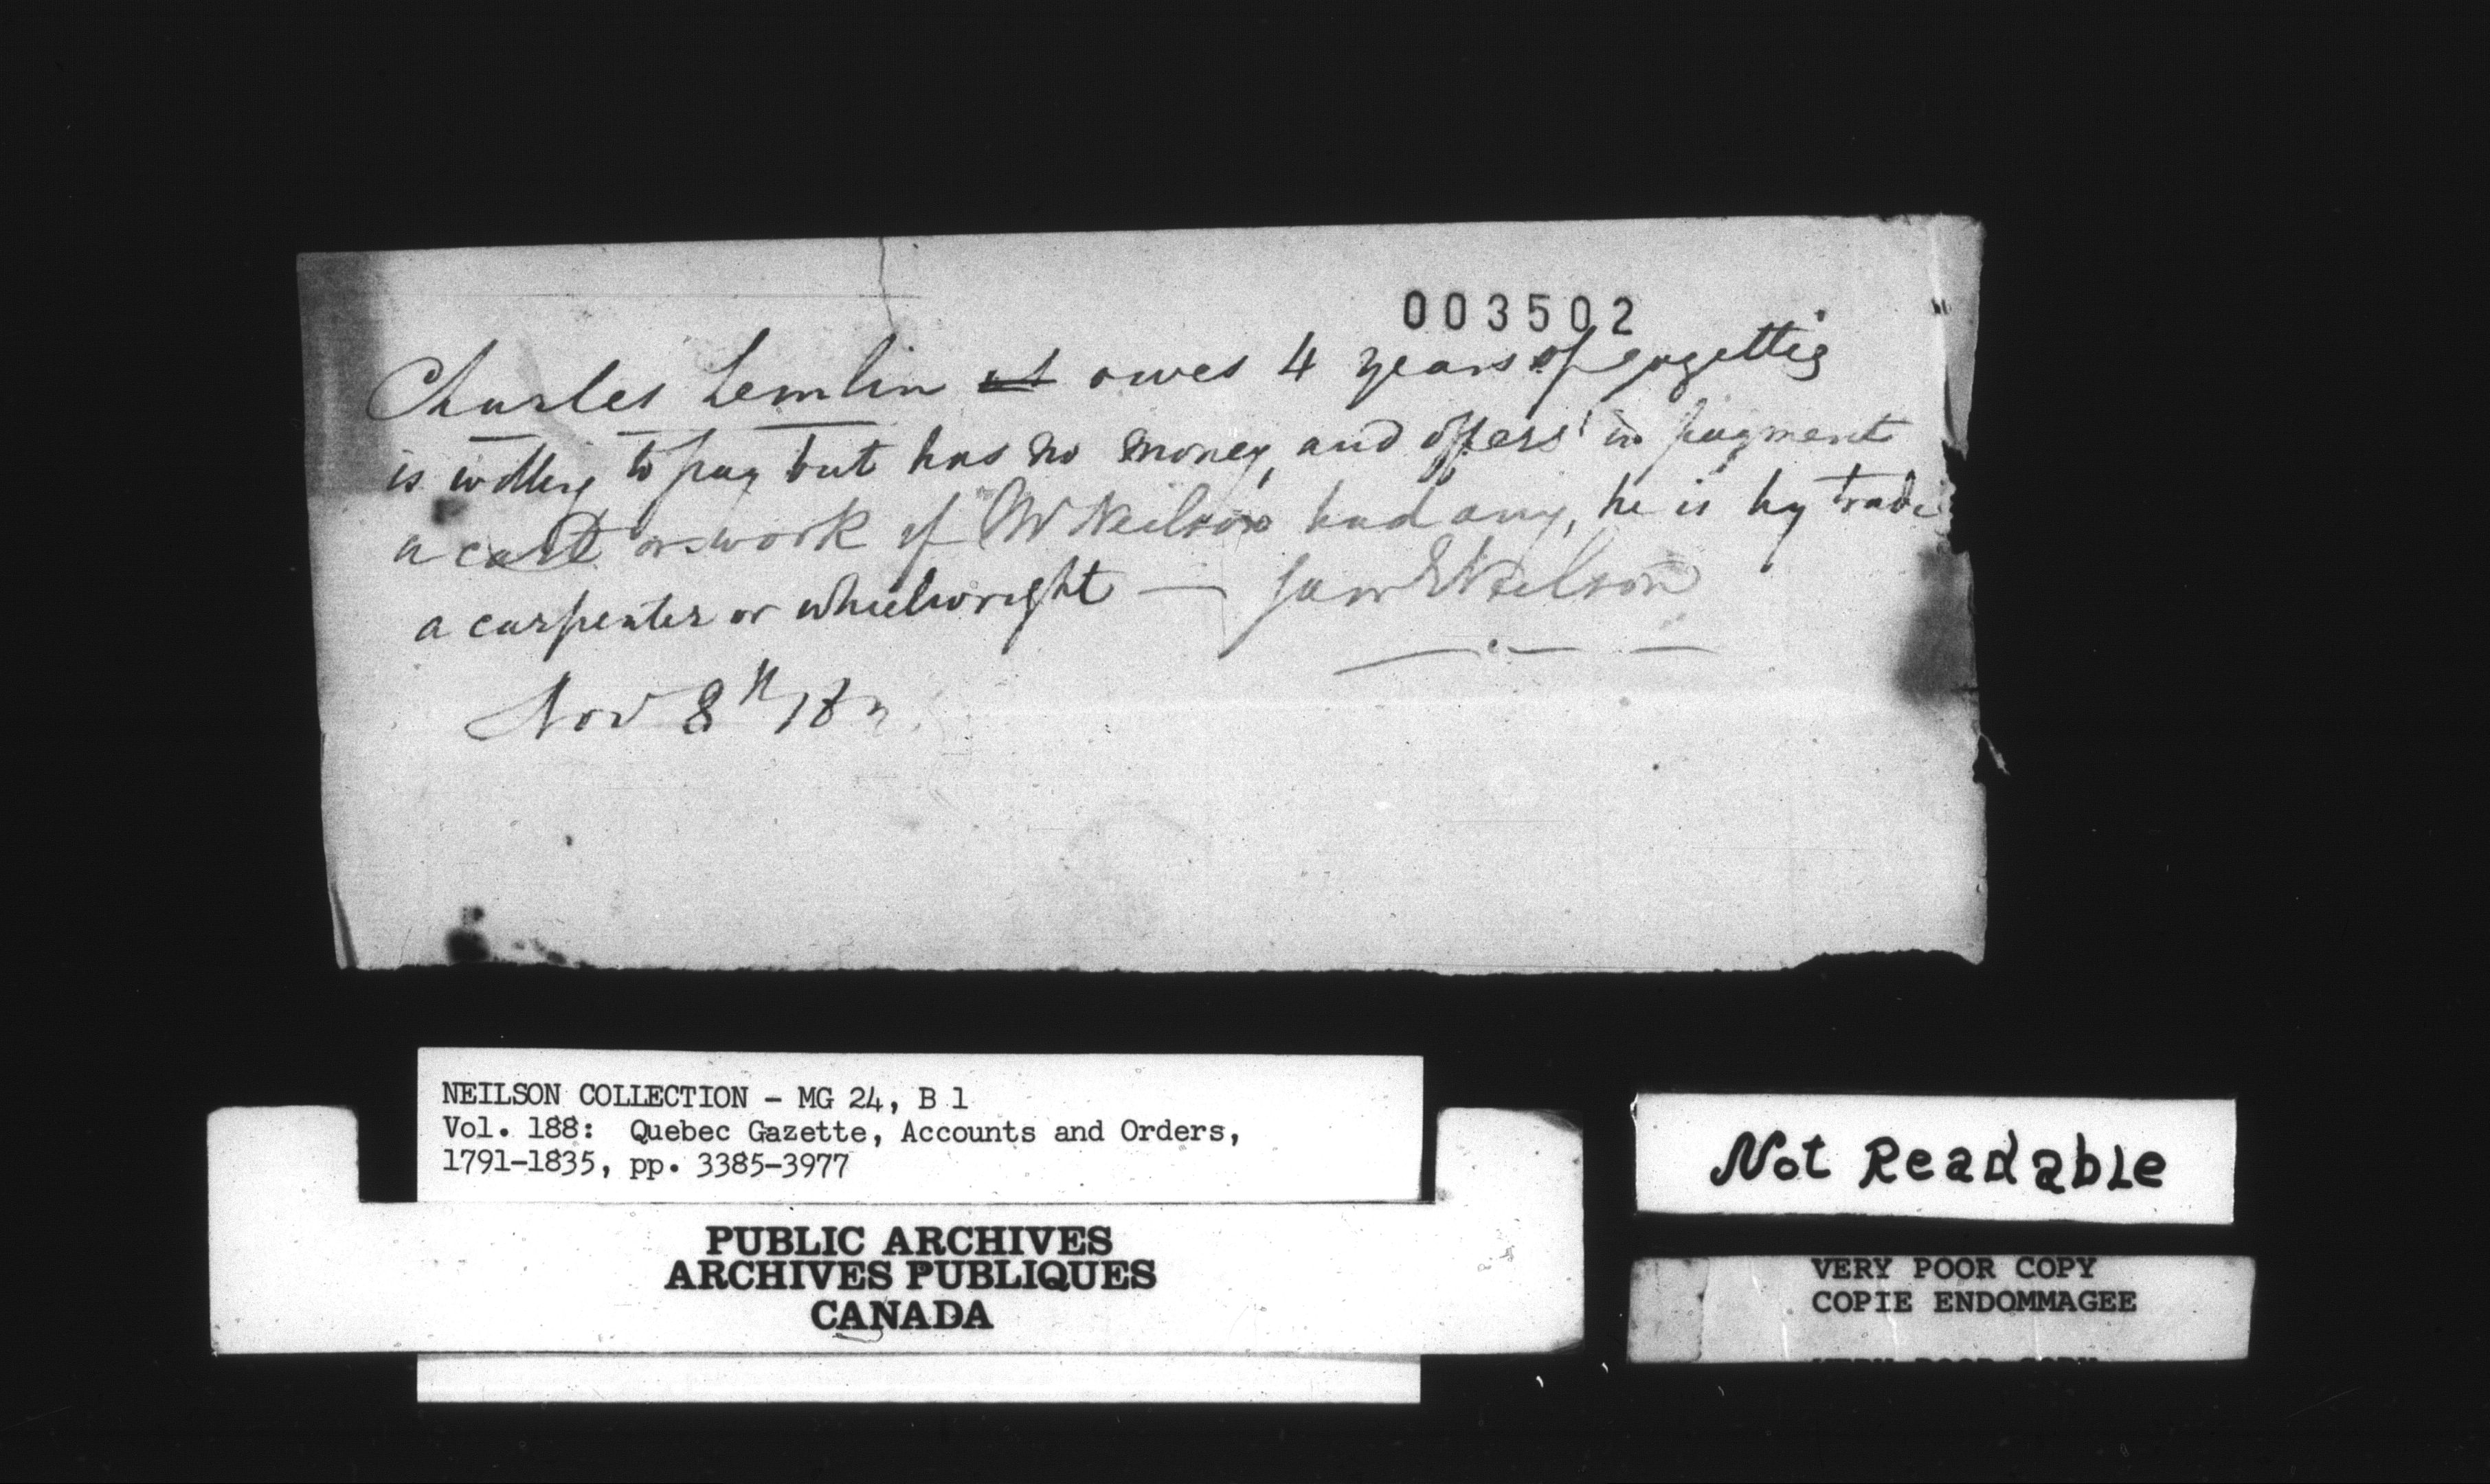 003502
Charles Lemlin owes 4 years of gazettes
is willing to pay but has no money, and offers in payment
a cart or work if Mr Neilson had any, he is by trade
a carpenter or wheelwright — Neilson
Nov 8th 18
NEILSON COLLECTION - MG 24, B 1
Vol. 188: Quebec Gazette, Accounts and Orders,
1791-1835, pp. 3385-3977
PUBLIC ARCHIVES
ARCHIVES PUBLIQUES
CANADA
Not Readable
VERY POOR COPY
COPIE ENDOMMAGEE